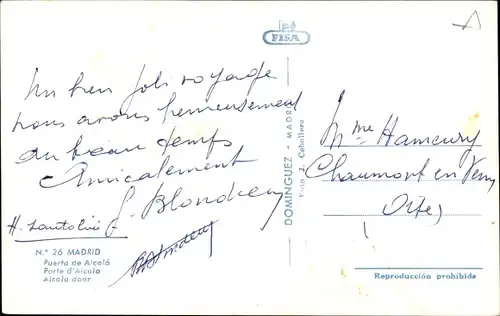 FISA
Un bien joli voyage
nous avons heureusement
du beau temps
Amicalement
G. Blondeau
H. Santolini
N.º 26 MADRID
Puerta de Alcalá
Porte d'Alcala
Alcala door
DOMINGUEZ - MADRID
Foto J. Caballero
Mme Hameury
Chaumont en Vexin
Oise
Reproducción prohibida